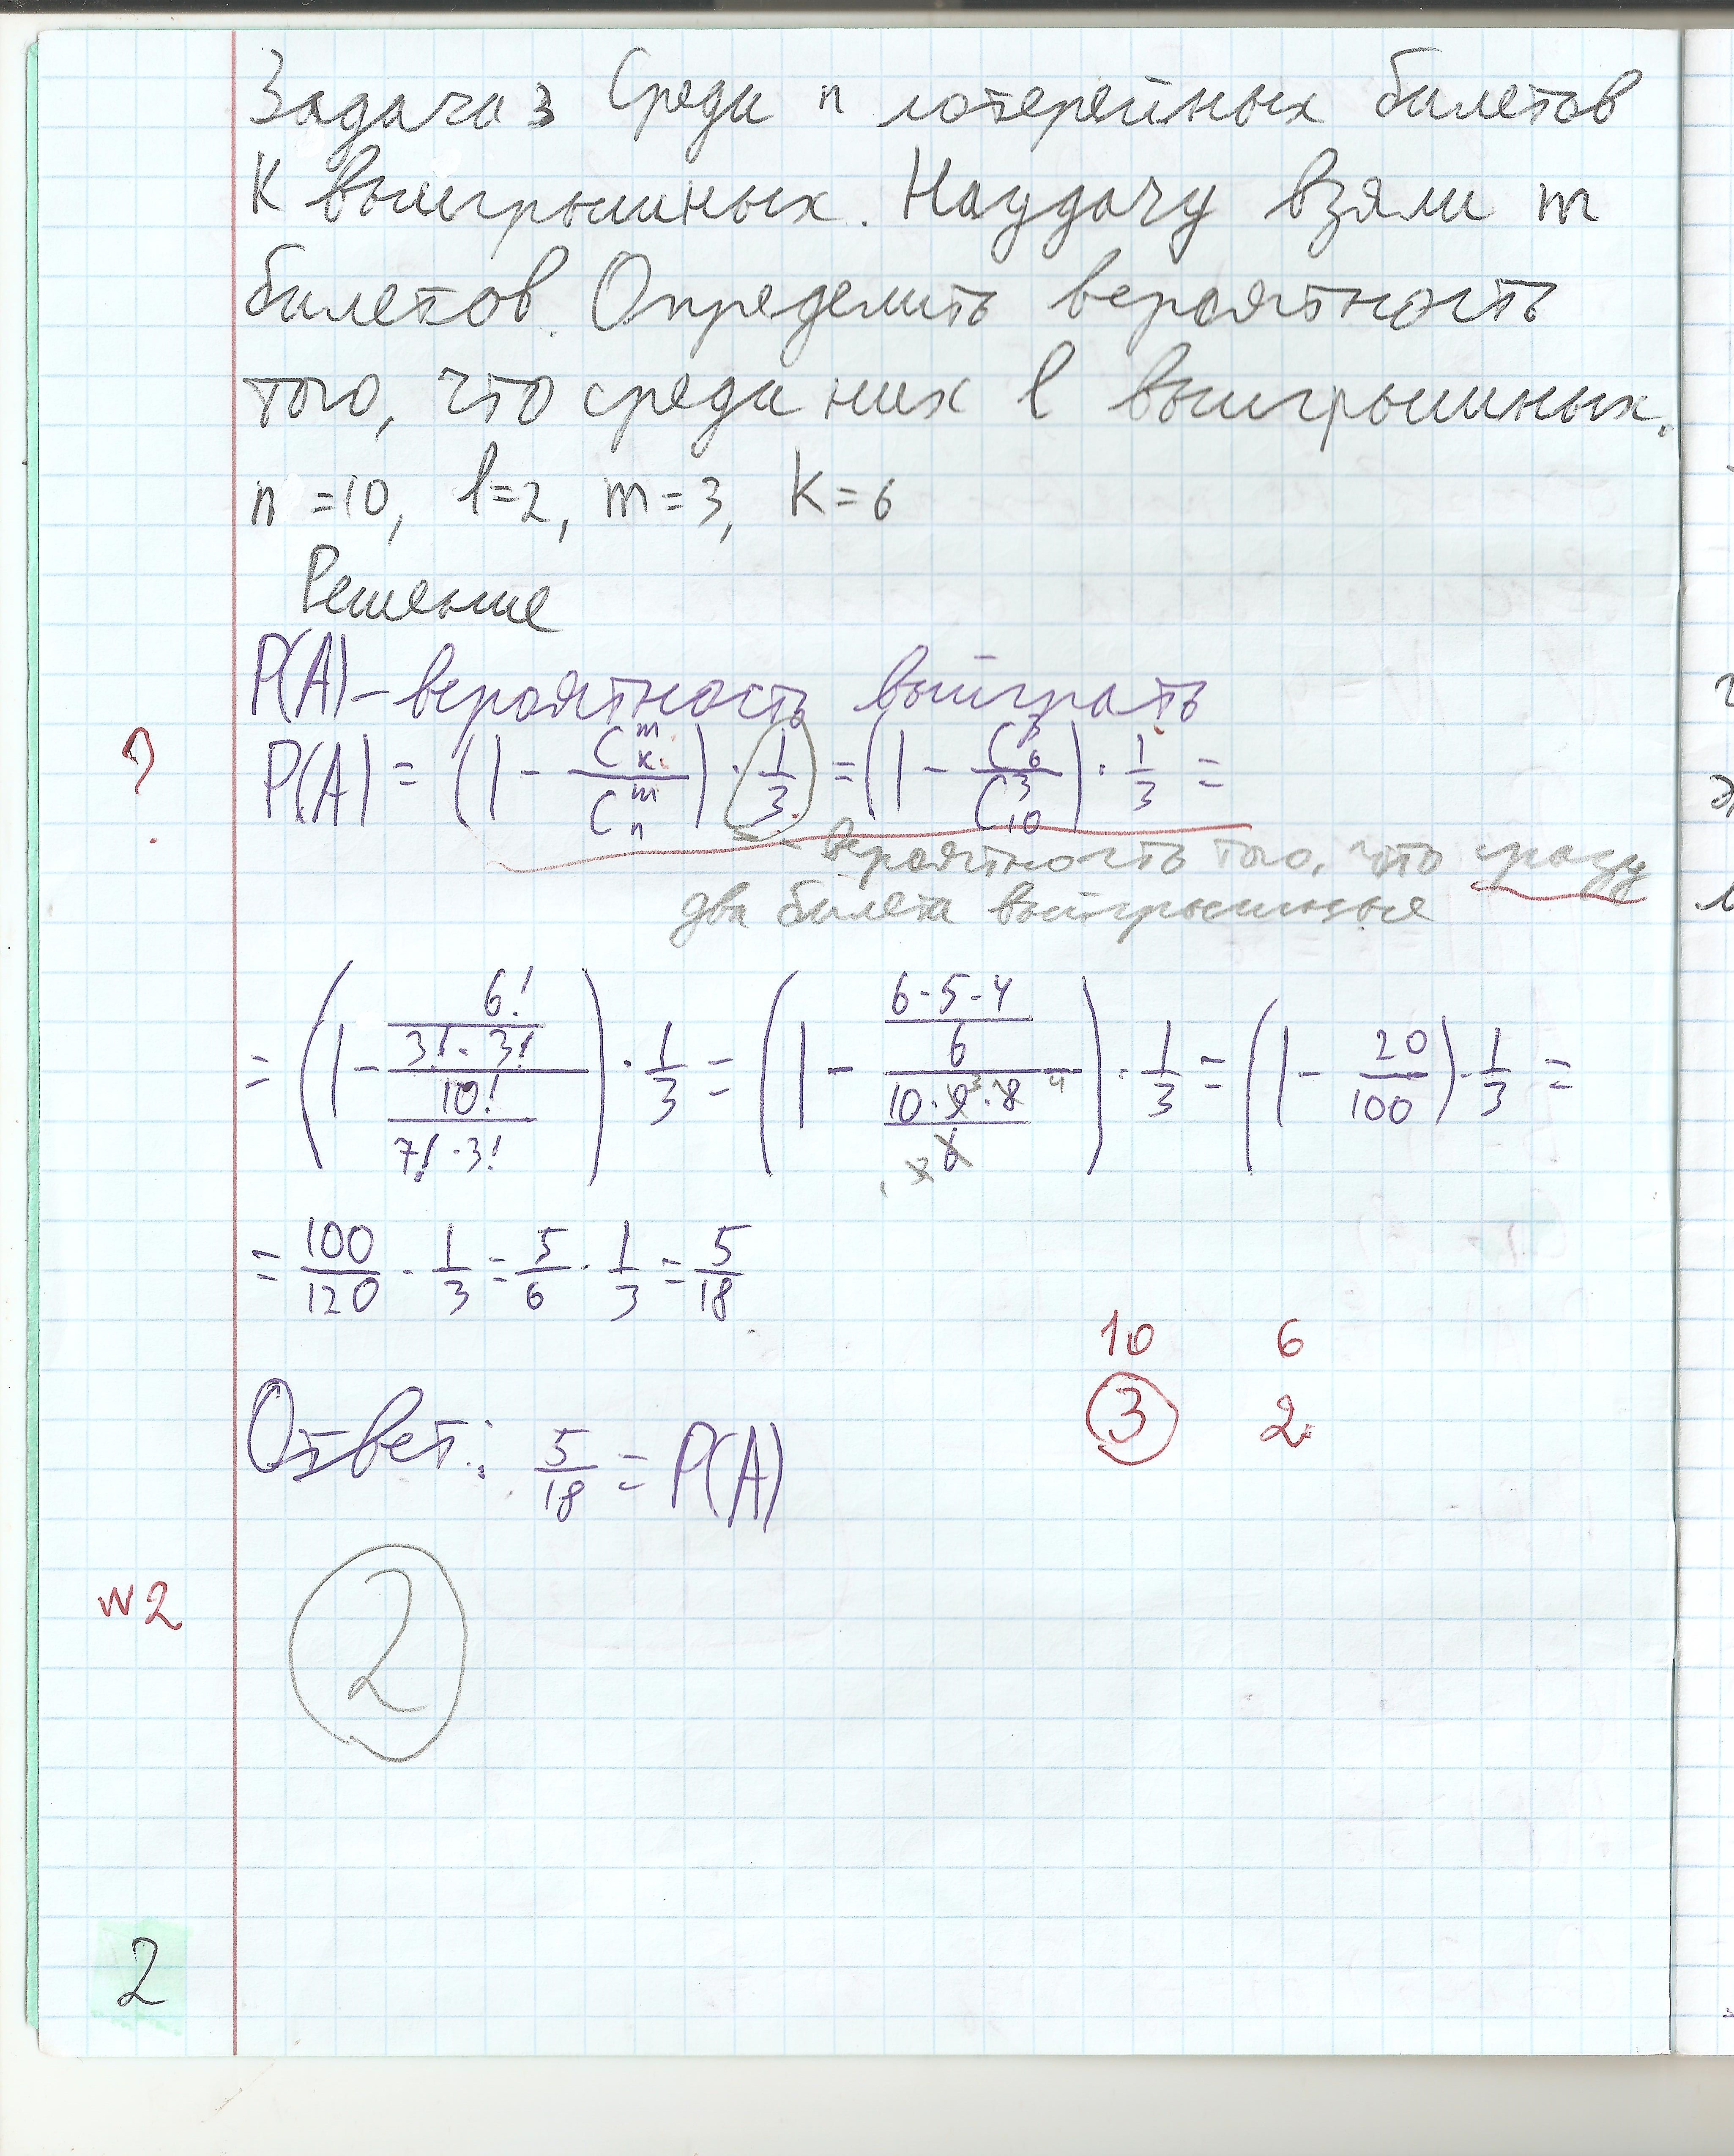 Задача 3 Среди n лотерейных билетов
K выигрышных. Наудачу взяли m
билетов. Определить вероятность
того, что среди них l выигрышных.
n =10, l=2, m=3, K=6
Решение
P(A) – вероятность выиграть
? P(A) = (1 - C_k^m / C_n^m) · 1/3 = (1 - C_6^3 / C_10^3) · 1/3 =
- вероятность того, что сразу
два билета выигрышные
= (1 - (6! / (3! · 3!)) / (10! / (7! · 3!))) · 1/3 = (1 - (6·5·4 / 6) / (10·9³·8⁴ / 6)) · 1/3 = (1 - 20/100) · 1/3 =
= 100/120 · 1/3 = 5/6 · 1/3 = 5/18
10 6
3 2
Ответ: 5/18 = P(A)
N2
2
2